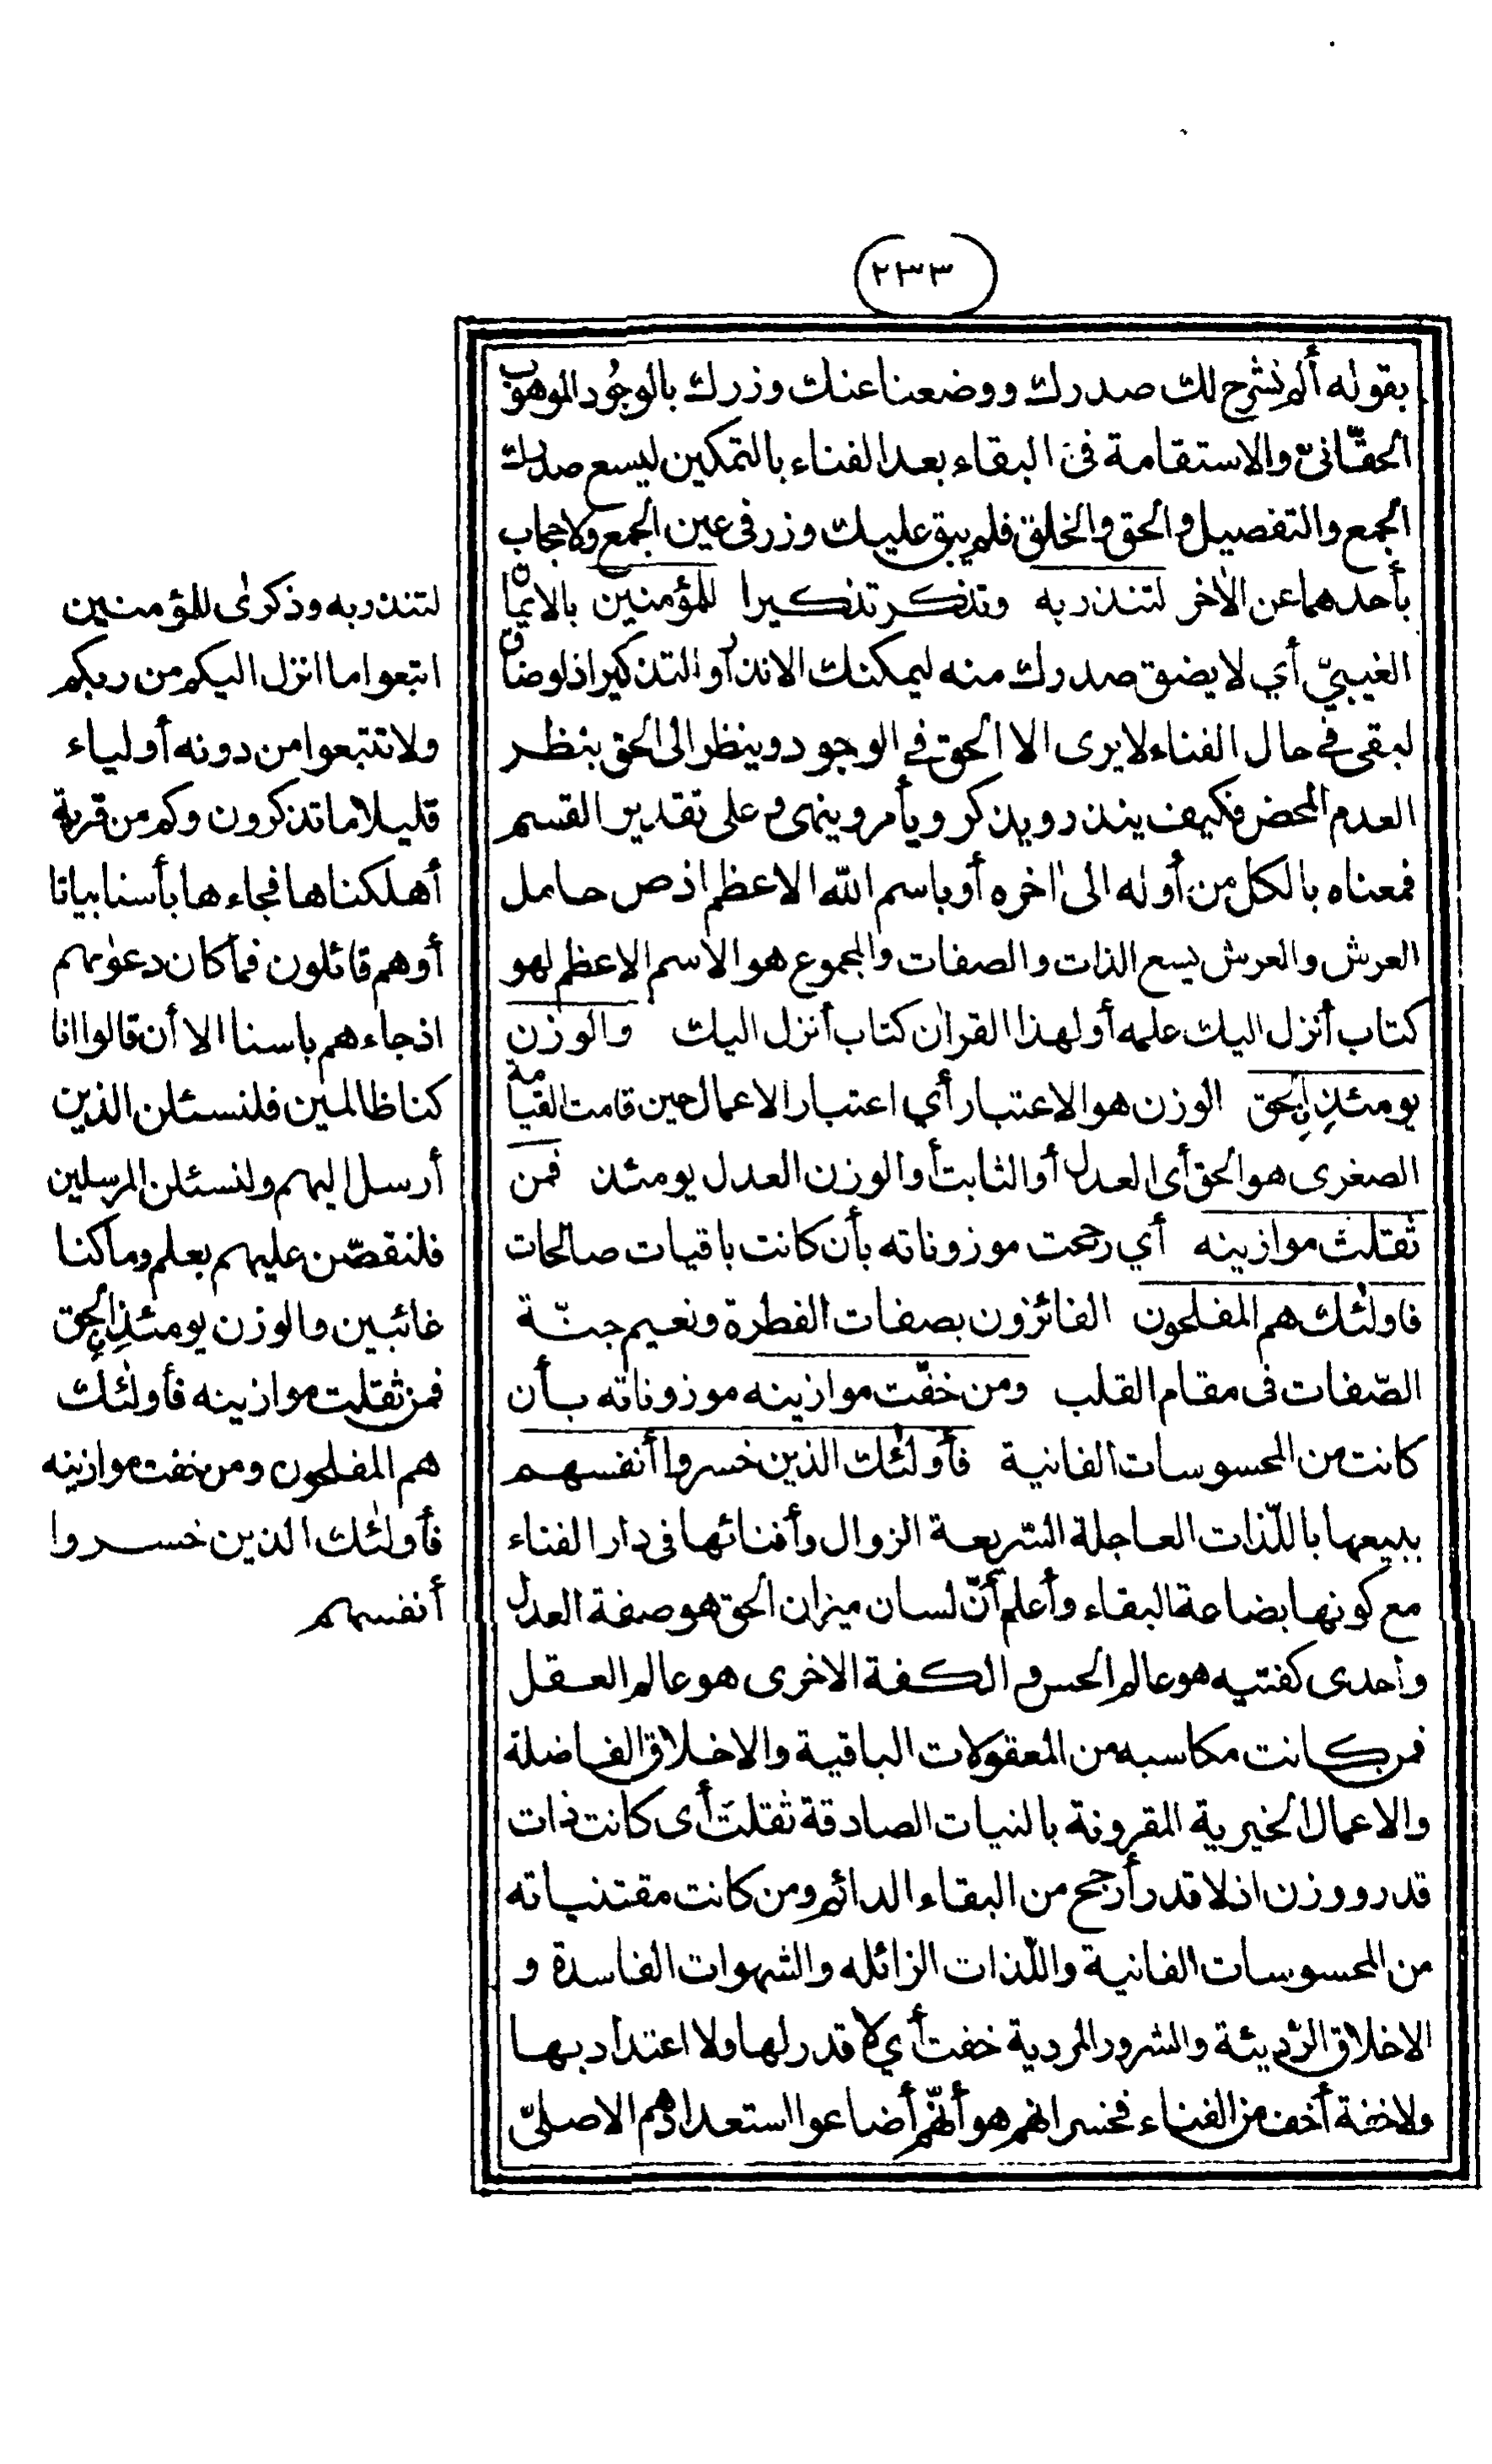 (٢٣٣)
بقوله ألم نشرح لك صدرك ووضعنا عنك وزرك بالوجُود الموهوب
الحقّانىّ والاستقامة فى البقاء بعد الفناء بالتمكين ليسع صدرك
الجمع والتفصيل والحق والخلق فلم يبق عليك وزر فى عين الجمع ولا حجاب
بأحدهما عن الآخر لتنذر به وتذكر تذكيرا للمؤمنين بالايمان
الغيبيّ أي لا يضق صدرك منه ليمكنك الانذار والتذكير اذ لو ضاق
لبقى في حال الفناء لا يرى الا الحق في الوجود وينظر الى الحق بنظر
العدم المحض فكيف ينذر ويذكر ويأمر وينهى وعلى تقدير القسم
فمعناه بالكل من أوله الى اٰخره أو باسم الله الاعظم اذ ص حامل
العرش والعرش يسع الذات والصفات والمجموع هو الاسم الاعظم لهو
كتاب أنزل اليك علمه أو لهذا القراٰن كتاب أنزل اليك والوزن
يومئذٍ الحق الوزن هو الاعتبار أي اعتبار الاعمال حين قامت القيامة
الصغرى هو الحق أى العدل أو الثابت أو الوزن العدل يومئذ فمن
ثقلت موازينه أي رجحت موزوناته بأن كانت باقيات صالحات
فاولٰئك هم المفلحون الفائزون بصفات الفطرة ونعيم جنّة
الصّفات فى مقام القلب ومن خفّت موازينه موزوناته بأن
كانت من المحسوسات الفانية فأولٰئك الذين خسروا أنفسهم
ببيعها باللّذات العاجلة السّريعة الزوال وأفنائها فى دار الفناء
مع كونها بضاعة البقاء وأعلم أنّ لسان ميزان الحق هو صفة العدل
واحدى كفتيه هو عالم الحس والكفة الاخرى هو عالم العقل
فمن كانت مكاسبه من المعقولات الباقية والاخلاق الفاضلة
والاعمال الخيرية المقرونة بالنيات الصادقة ثقلت أى كانت ذات
قدر ووزن اذ لا قدر أرجح من البقاء الدائم ومن كانت مقتنياته
من المحسوسات الفانية واللّذات الزائله والشهوات الفاسدة و
الاخلاق الرّديئة والشرور المردية خفت أي لا قدر لها ولا اعتداد بها
ولا خفة أخف من الفناء فخسرانهم هو أنّهم أضاعوا استعدادهم الاصلىّ
لتنذر به وذكرىٰ للمؤمنين
اتبعوا ما انزل اليكم من ربكم
ولا تتبعوا من دونه أولياء
قليلا ما تذكرون وكم من قرية
أهلكناها فجاءها بأسنا بياتا
أو هم قائلون فما كان دعوٰيهم
اذ جاءهم باسنا الا أن قالوا انا
كنا ظالمين فلنسئلن الذين
أرسل اليهم ولنسئلن المرسلين
فلنقصّن عليهم بعلم وما كنا
غائبين والوزن يومئذٍ الحق
فمن ثقلت موازينه فأولٰئك
هم المفلحون ومن خفت موازينه
فأولٰئك الذين خسروا
أنفسهم